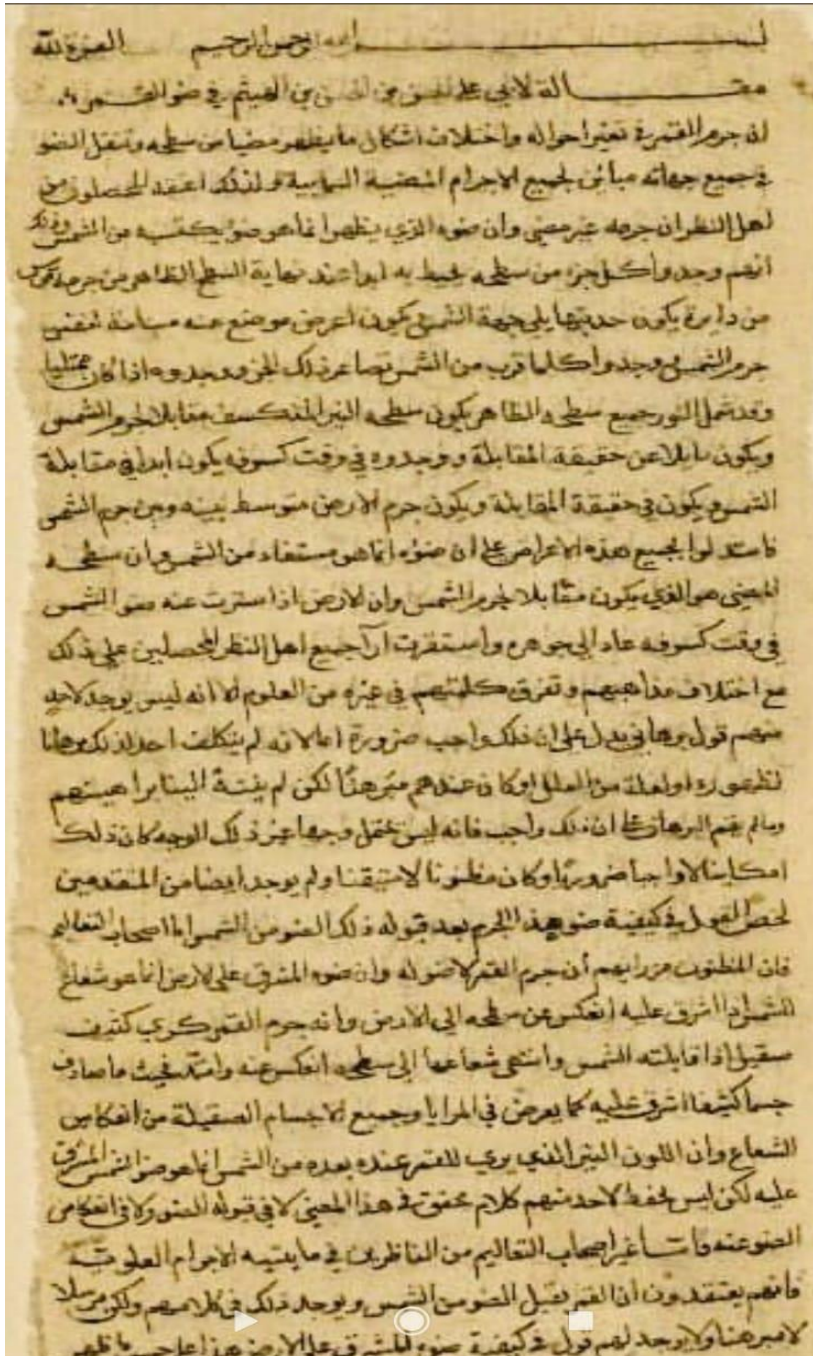 بسم الله الرحمن الرحيم العزة لله
مقالة لابي علي الحسن بن الحسن بن الهيثم في ضو القمر
ان جرم القمر في تغير احواله واختلاف اشكال ما يظهر مضيا من سطحه وتنقل الضو
في جميع جهاته مباين لجميع الاجرام المضية السمايية ولذلك اعتقد المحصلون من
اهل النظر ان جرمه غير مضي وان ضوه الذي يظهر انما هو ضو يكتسبه من الشمس وذلك
انهم وجدوا كل جزء من سطحه يحيط به ابدا عند نهاية السطح الظاهر من جرمه قوس
من دايرة يكون حدبتها يلي جهة الشمس يكون اعرض موضع منه مسامتة
جرم الشمس ووجدوا كلما قرب من الشمس تصاغر ذلك الجزو ووجدوه اذا كان ممتليا
وقد شمل النور جميع سطحه الظاهر يكون سطحه النير المنكسف مقابلا لجرم الشمس
ويكون مايلا عن حقيقة المقابلة ووجدوه في وقت كسوفه يكون ابدا في مقابلة
الشمس ويكون في حقيقة المقابلة ويكون جرم الارض متوسط بينه وبين جرم الشمس
فاستدلوا بجميع هذه الاعراض على ان ضوه انما هو مستفاد من الشمس وان سطحه
المضي هو الذي يكون مقابلا لجرم الشمس وان الارض اذا سترت عنه ضو الشمس
في وقت كسوفه عاد الي جوهره واستقرت ارآ جميع اهل النظر المحصلين على ذلك
مع اختلاف مذاهبهم وتفرق كلمتهم في غيره من العلوم الا انه ليس يوجد لاحد
منهم قول برهاني يدل على ان ذلك واجب ضرورة اما لانه لم يتكلف احد لذلك برهانا
لظهوره او لعلة من العلل او كان عندهم مبرهنا لكن لم ينته الينا براهينهم
وما لم يقم البرهان على ان ذلك واجب فانه ليس يحتمل وجها غير ذلك الوجه كان ذلك
امكانيا لا واجبا ضروريا وكان مظنونا لا متيقنا ولم يوجد ايضا من المتقدمين
لخص القول في كيفية ضو هذا الجرم بعد قبوله ذلك الضو من الشمس اما اصحاب التعاليم
فان المظنون من رايهم أن جرم القمر لا ضو له وان ضوه المشرق على الارض انما هو شعاع
الشمس اذا اشرق عليه انعكس عن سطحه الي الارض وانه جرم القمر كري كثيف
صقيل اذا قابلته الشمس وانتهى شعاعها الى سطحه انعكس عنه وامتد فحيث ما صادف
جسما كثيفا اشرق عليه كما يعرض في المرايا وجميع الاجسام الصقيلة من انعكاس
الشعاع وان اللون النير الذي يري للقمر عنده بعده من الشمس انما هو ضو الشمس المشرق
عليه لكن ليس يحفظ لاحد منهم كلام محقق في هذا المعنى لا في قبوله الضو ولا في انعكاس
الضو عنه فاما غير اصحاب التعاليم من الناظرين في مايتيه الاجرام العلوية
فانهم يعتقدون ان القمر يقبل الضو من الشمس ويوجد ذلك في كلامهم ولكن مرسلا
لا مبرهنا ولا يوجد لهم قول في كيفية ضوه المشرق على الارض